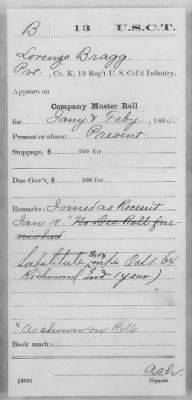 B 13 U.S.C.T.
Lorenzo Bragg
Pvt., Co. K, 13 Reg't U. S. Col'd Infantry.
Appears on
Company Muster Roll
for Jany & Feby, 1865.
Present or absent Present
Stoppage, $ 100 for
Due Gov't, $ 100 for
Remarks: Joined as Recruit
Jan 18. "No Des Roll fur
nished
Substitute Oct 1. 64
Richmond Ind 1 year)
*As shown on Roll
Book mark:
(358) Copyist.